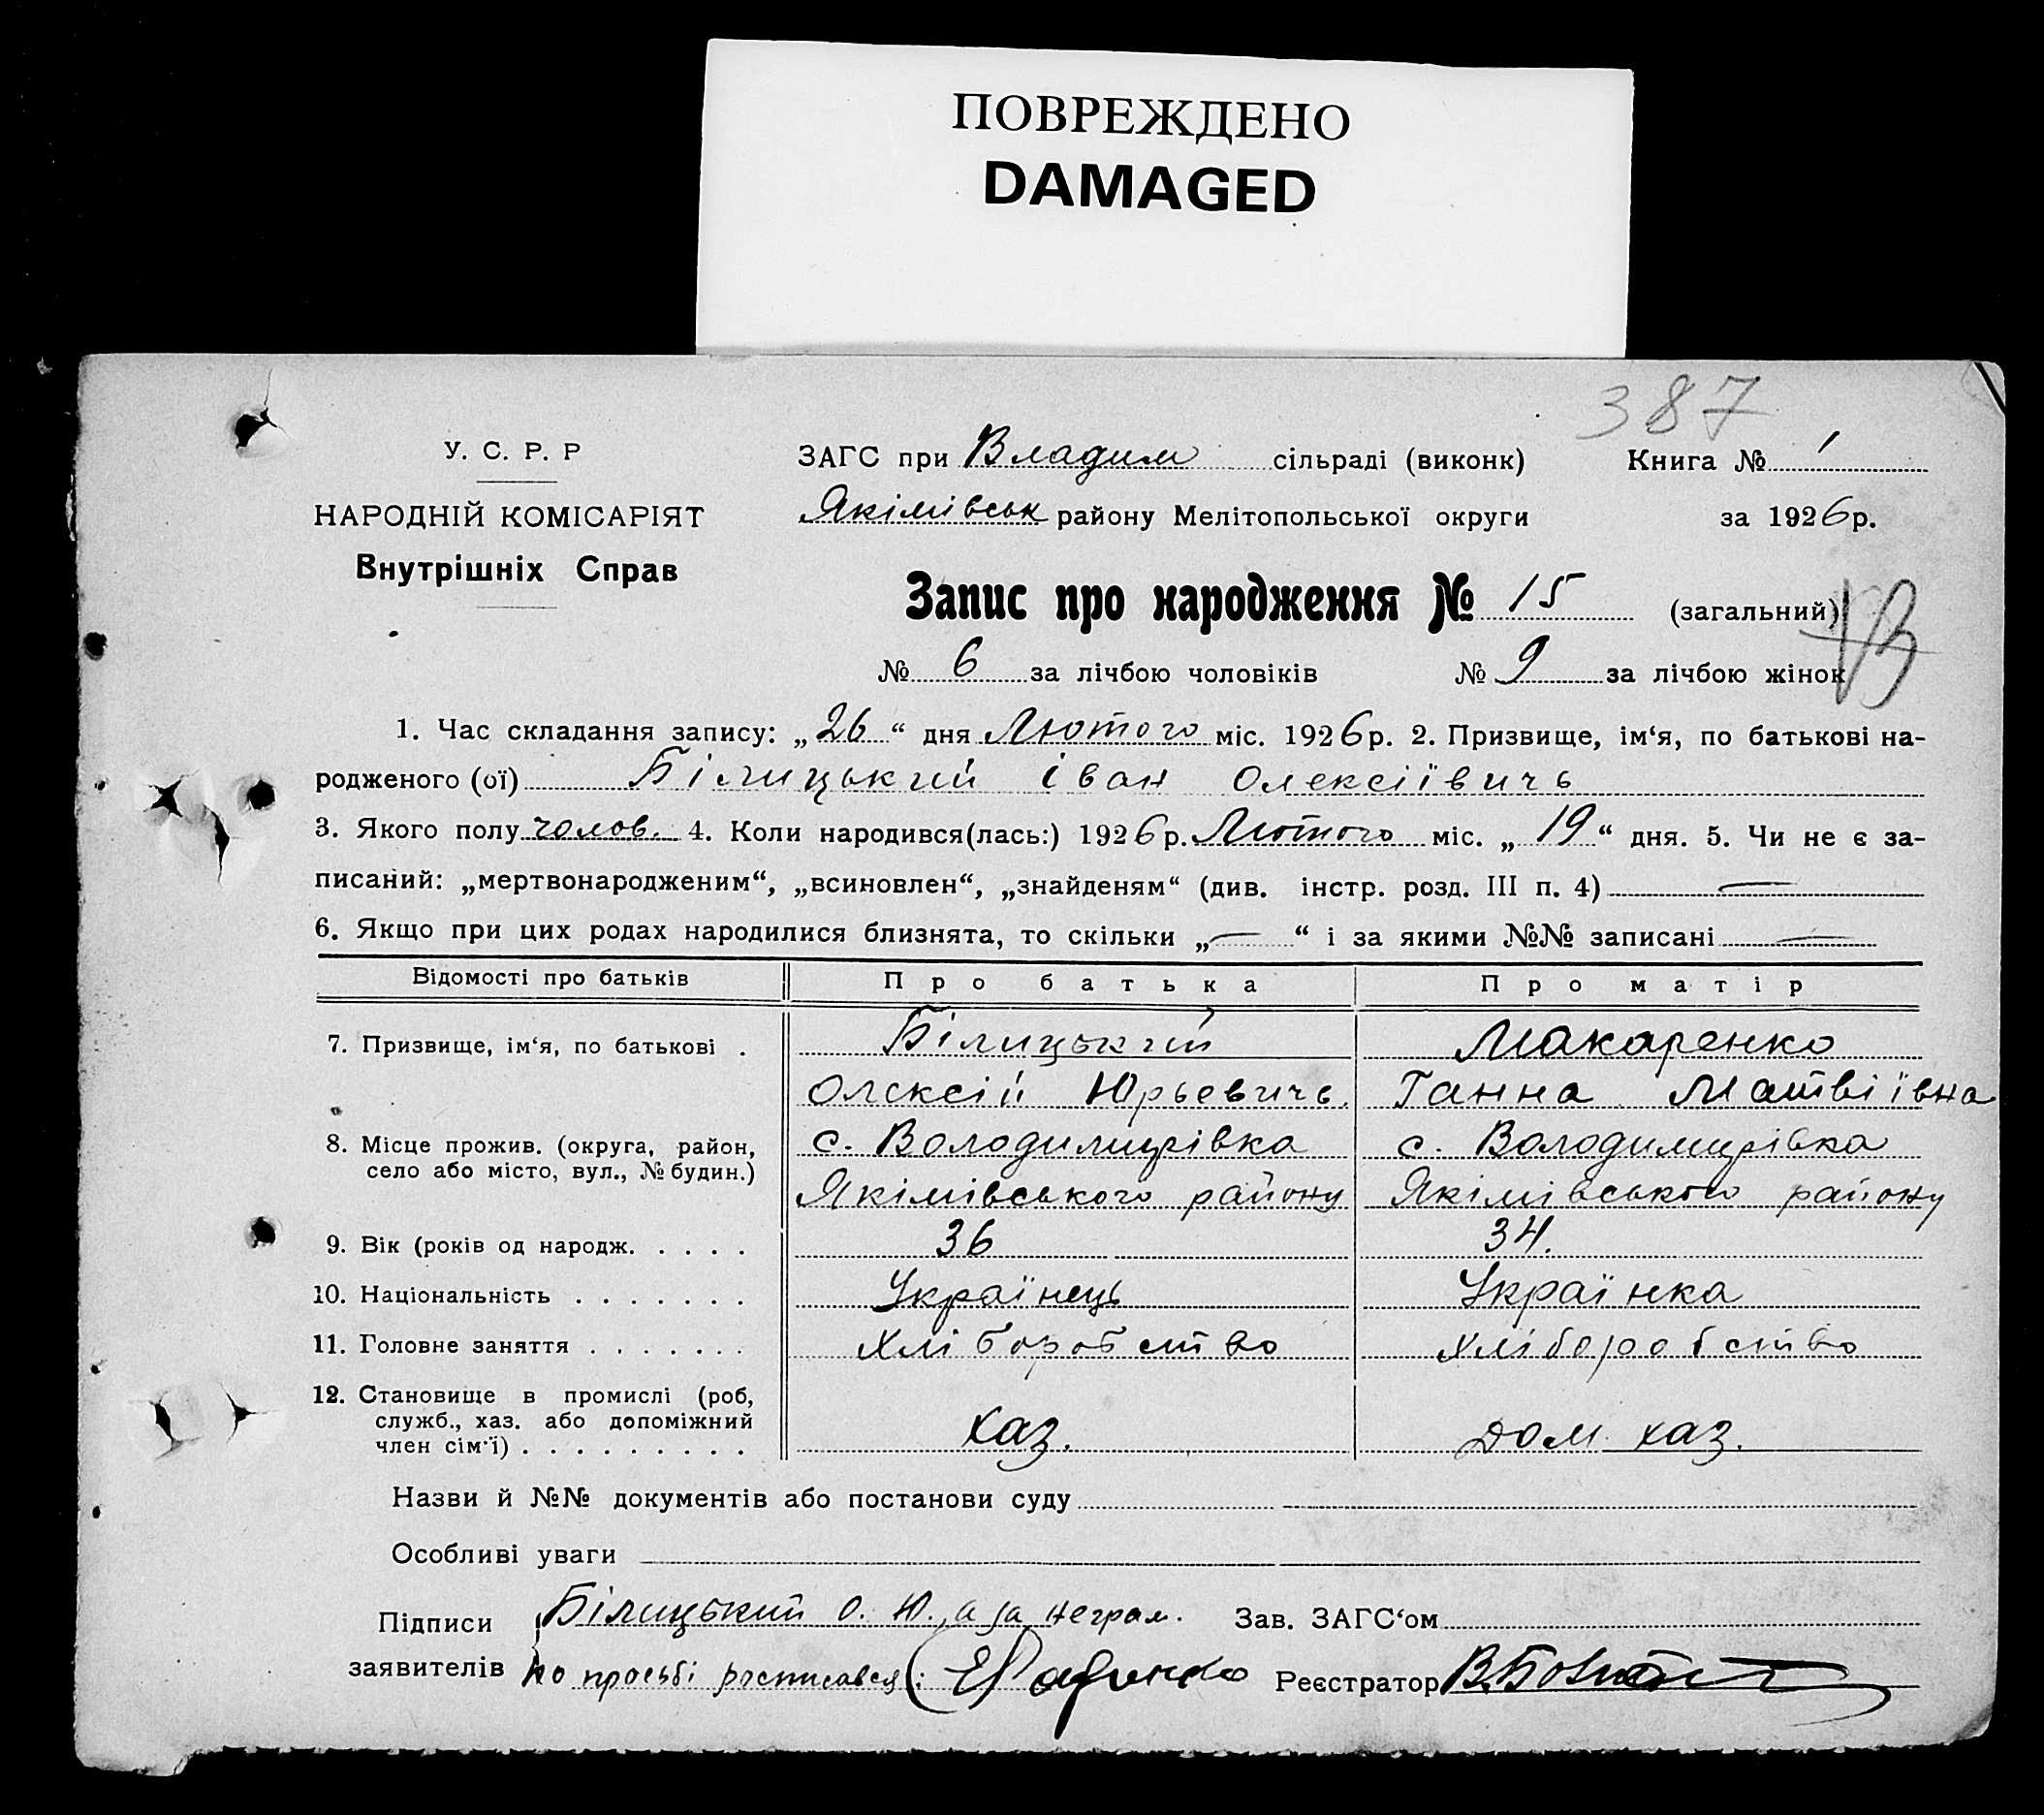 ПОВРЕЖДЕНО
DAMAGED
387
У. С. Р. Р
НАРОДНІЙ КОМІСАРІЯТ
Внутрішніх Справ
ЗАГС при Владим сільраді (виконк) Книга № 1
Якімівськ району Мелітопольської округи за 1926 р.
Запис про народження № 15 (загальний)
№ 6 за лічбою чоловіків № 9 за лічбою жінок
1. Час складання запису: „26“ дня Лютого міс. 1926 р. 2. Призвище, ім‘я, по батькові на-
родженого (ої) Білицький Іван Олексіївичь
3. Якого полу чолов. 4. Коли народився(лась:) 1926 р. Лютого міс. „19“ дня. 5. Чи не є за-
писаний: „мертвонародженим“, „всиновлен“, „знайденям“ (див. інстр. розд. III п. 4) —
6. Якщо при цих родах народилися близнята, то скільки „—“ і за якими №№ записані —
Відомості про батьків Про батька Про матір
7. Призвище, ім‘я, по батькові . Білицький Макаренко
Олексій Юрьевичь. Ганна Матвіївна
8. Місце прожив. (округа, район, с. Володимирівка с. Володимирівка
село або місто, вул., № будин.) Якімівського району Якімівського району
9. Вік (років од народж. . . . . 36 34.
10. Національність . . . . . . . Українець Українка
11. Головне заняття . . . . . . . Хліборобство Хліборобство
12. Становище в промислі (роб,
служб., хаз. або допоміжний
член сім‘ї) . . . . . . . . . Хаз. Дом. хаз.
Назви й №№ документів або постанови суду
Особливі уваги
Підписи Білицький О. Ю., а за неграм. Зав. ЗАГС‘ом
заявителів по просьбі росписався: Реєстратор